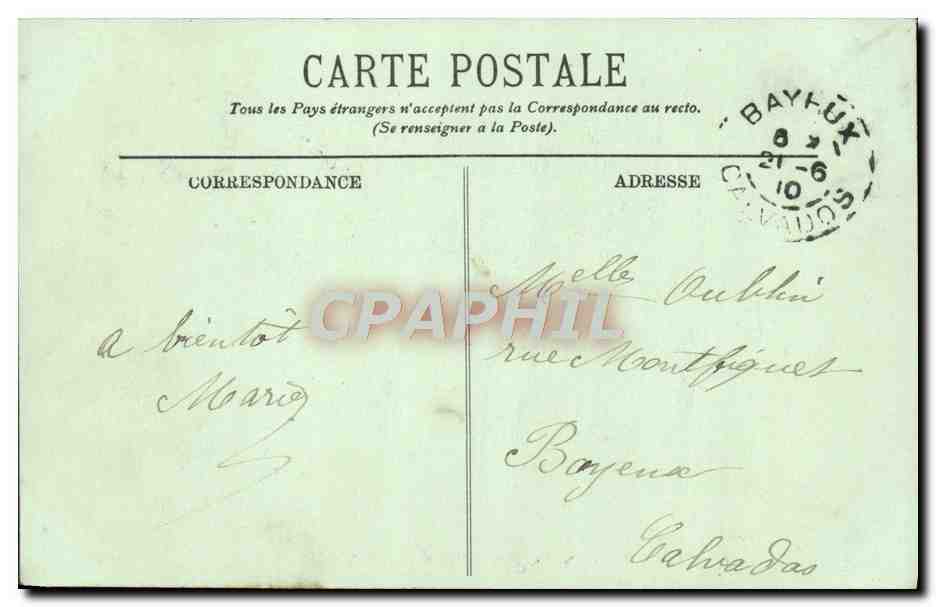 CARTE POSTALE
Tous les Pays étrangers n'acceptent pas la Correspondance au recto.
(Se renseigner a la Poste).
BAYEUX
21-6
10
CALVADOS
CORRESPONDANCE
ADRESSE
a bientôt
Marie
Melles
rue Montfiquet
Bayeux
Calvados
CPAPHIL